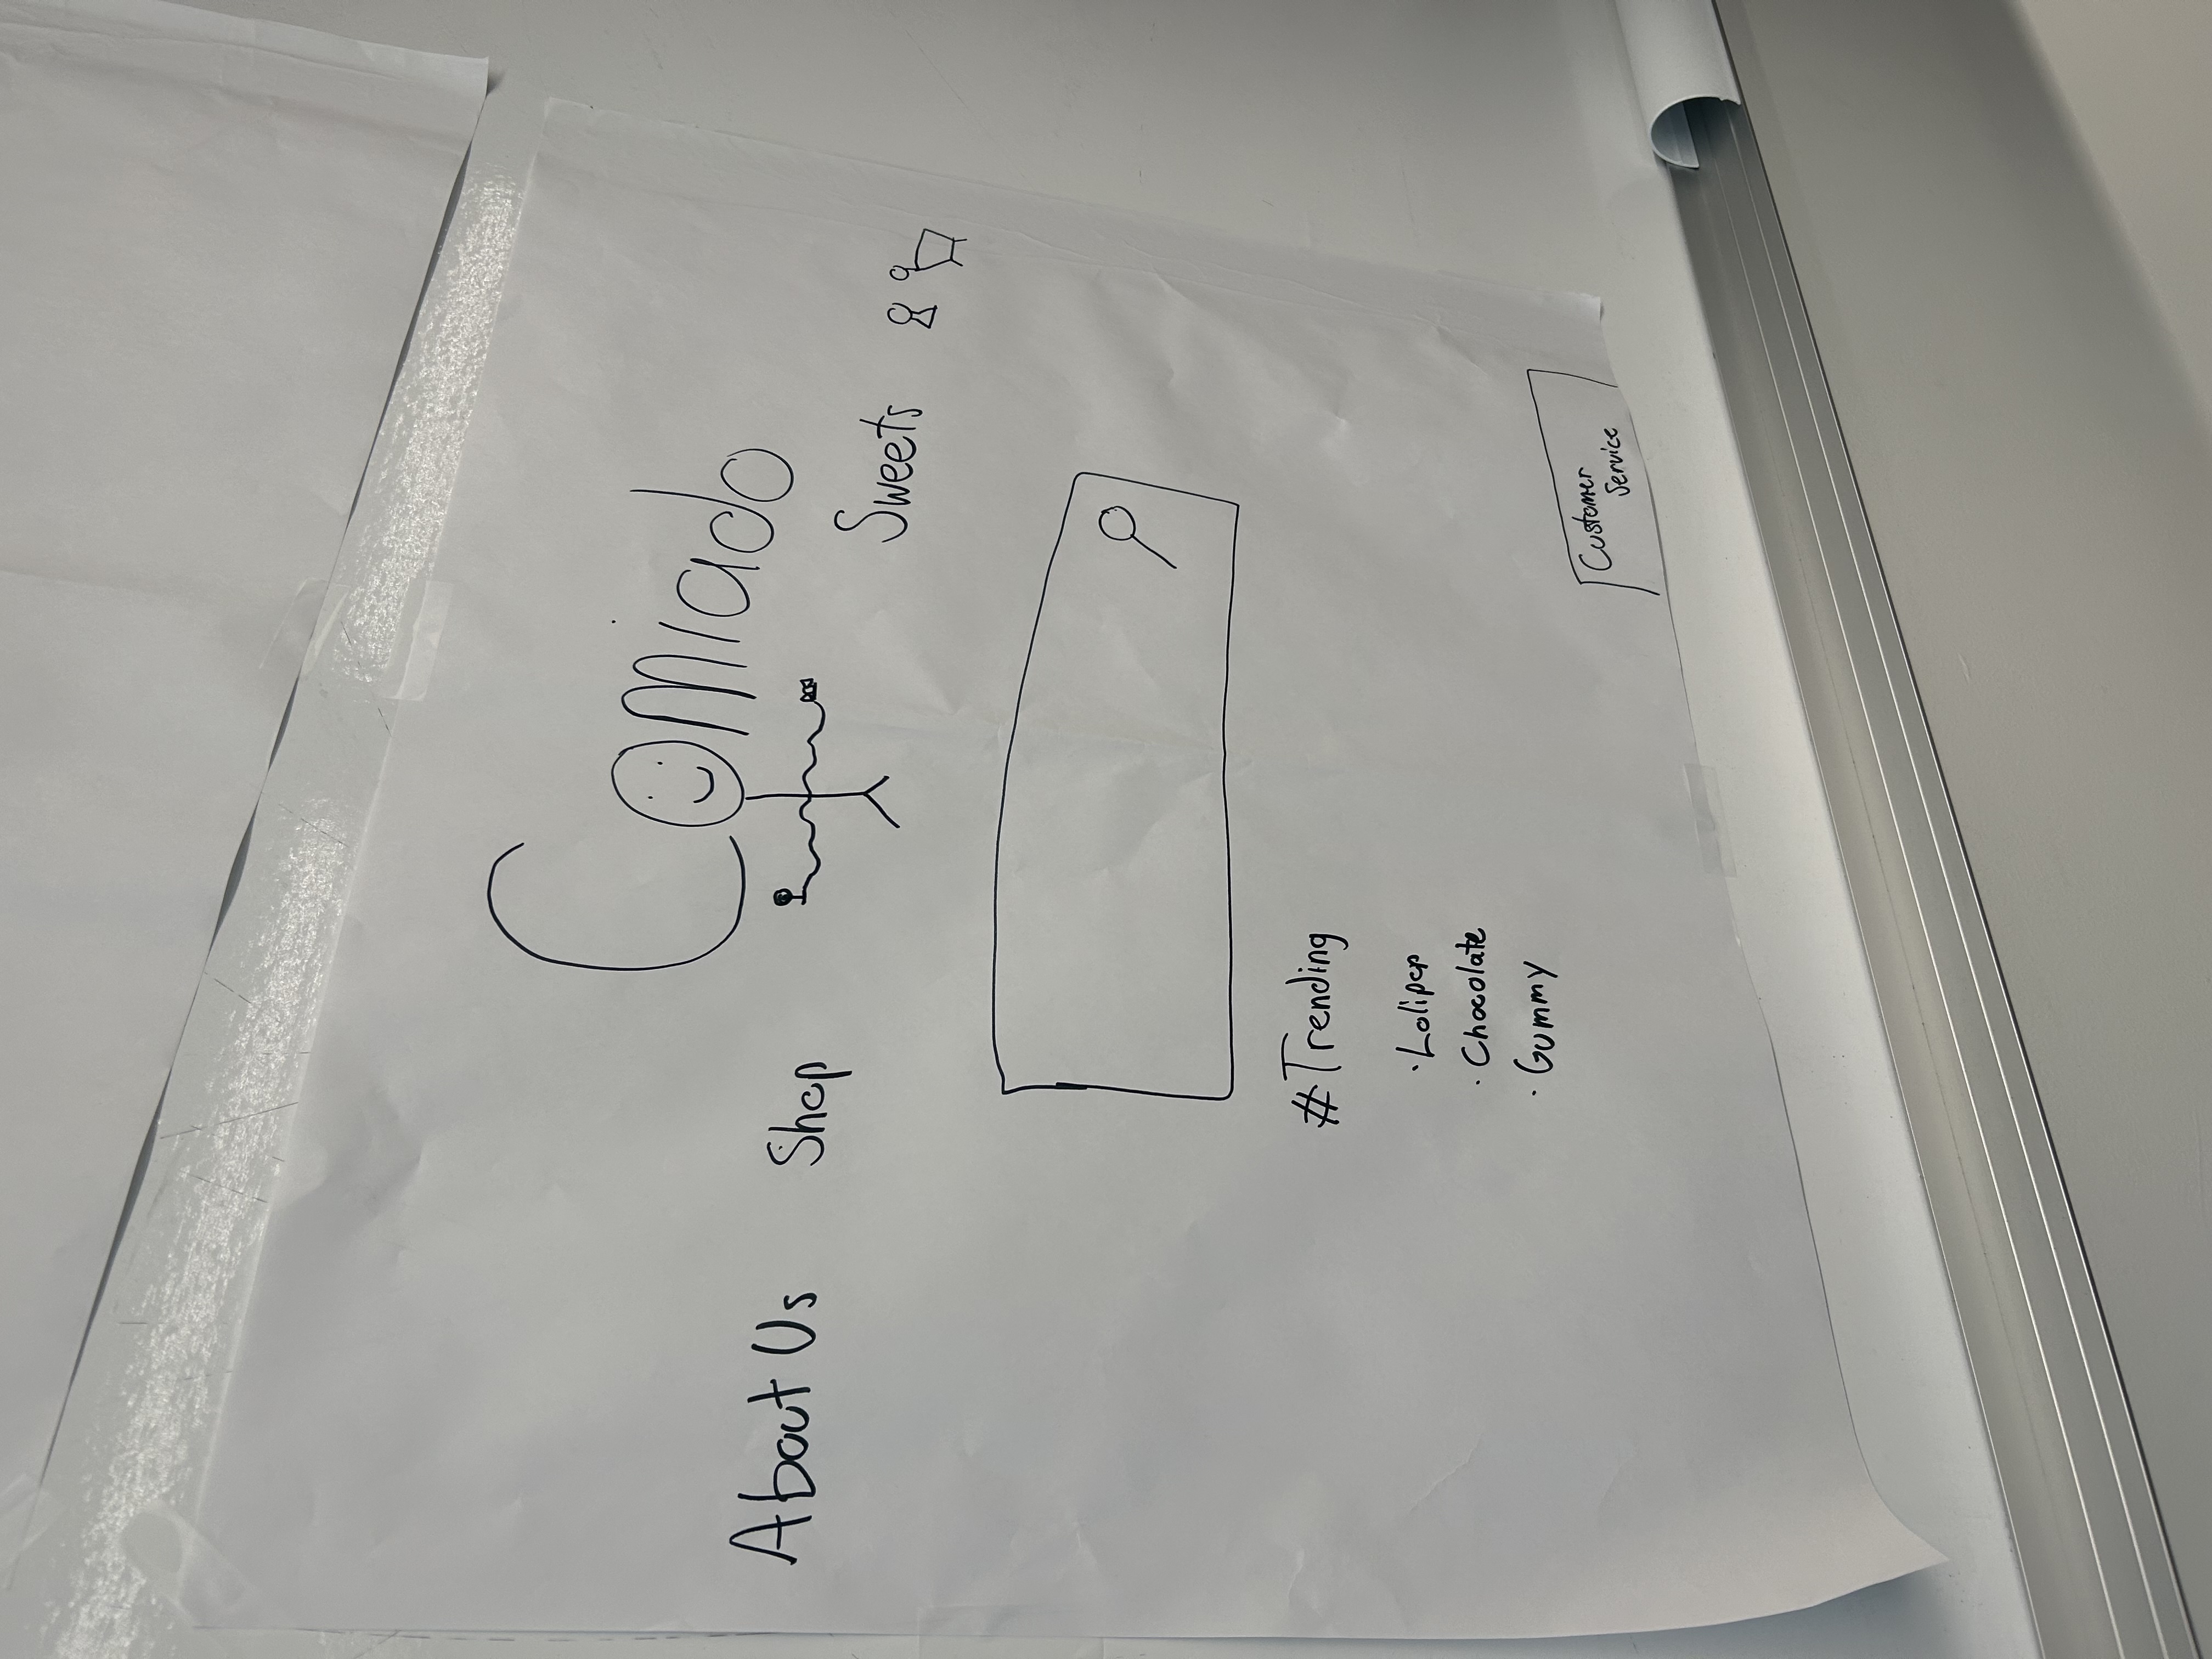 Comiado
About Us
Shop
Sweets
#Trending
·Lolipop
·Chocolate
·Gummy
Customer
Service